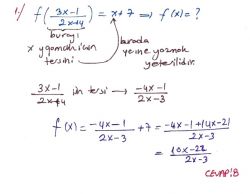 1-) f(3x-1/2x+4) = x+7 ⇒ f(x)=?
burayı
x yapmak için
tersini
burada
yerine yazmak
yeterlidir.
3x-1/2x+4 in tersi → -4x-1/2x-3
f(x) = -4x-1/2x-3 + 7 = -4x-1+14x-21/2x-3
= 10x-22/2x-3
CEVAP: B